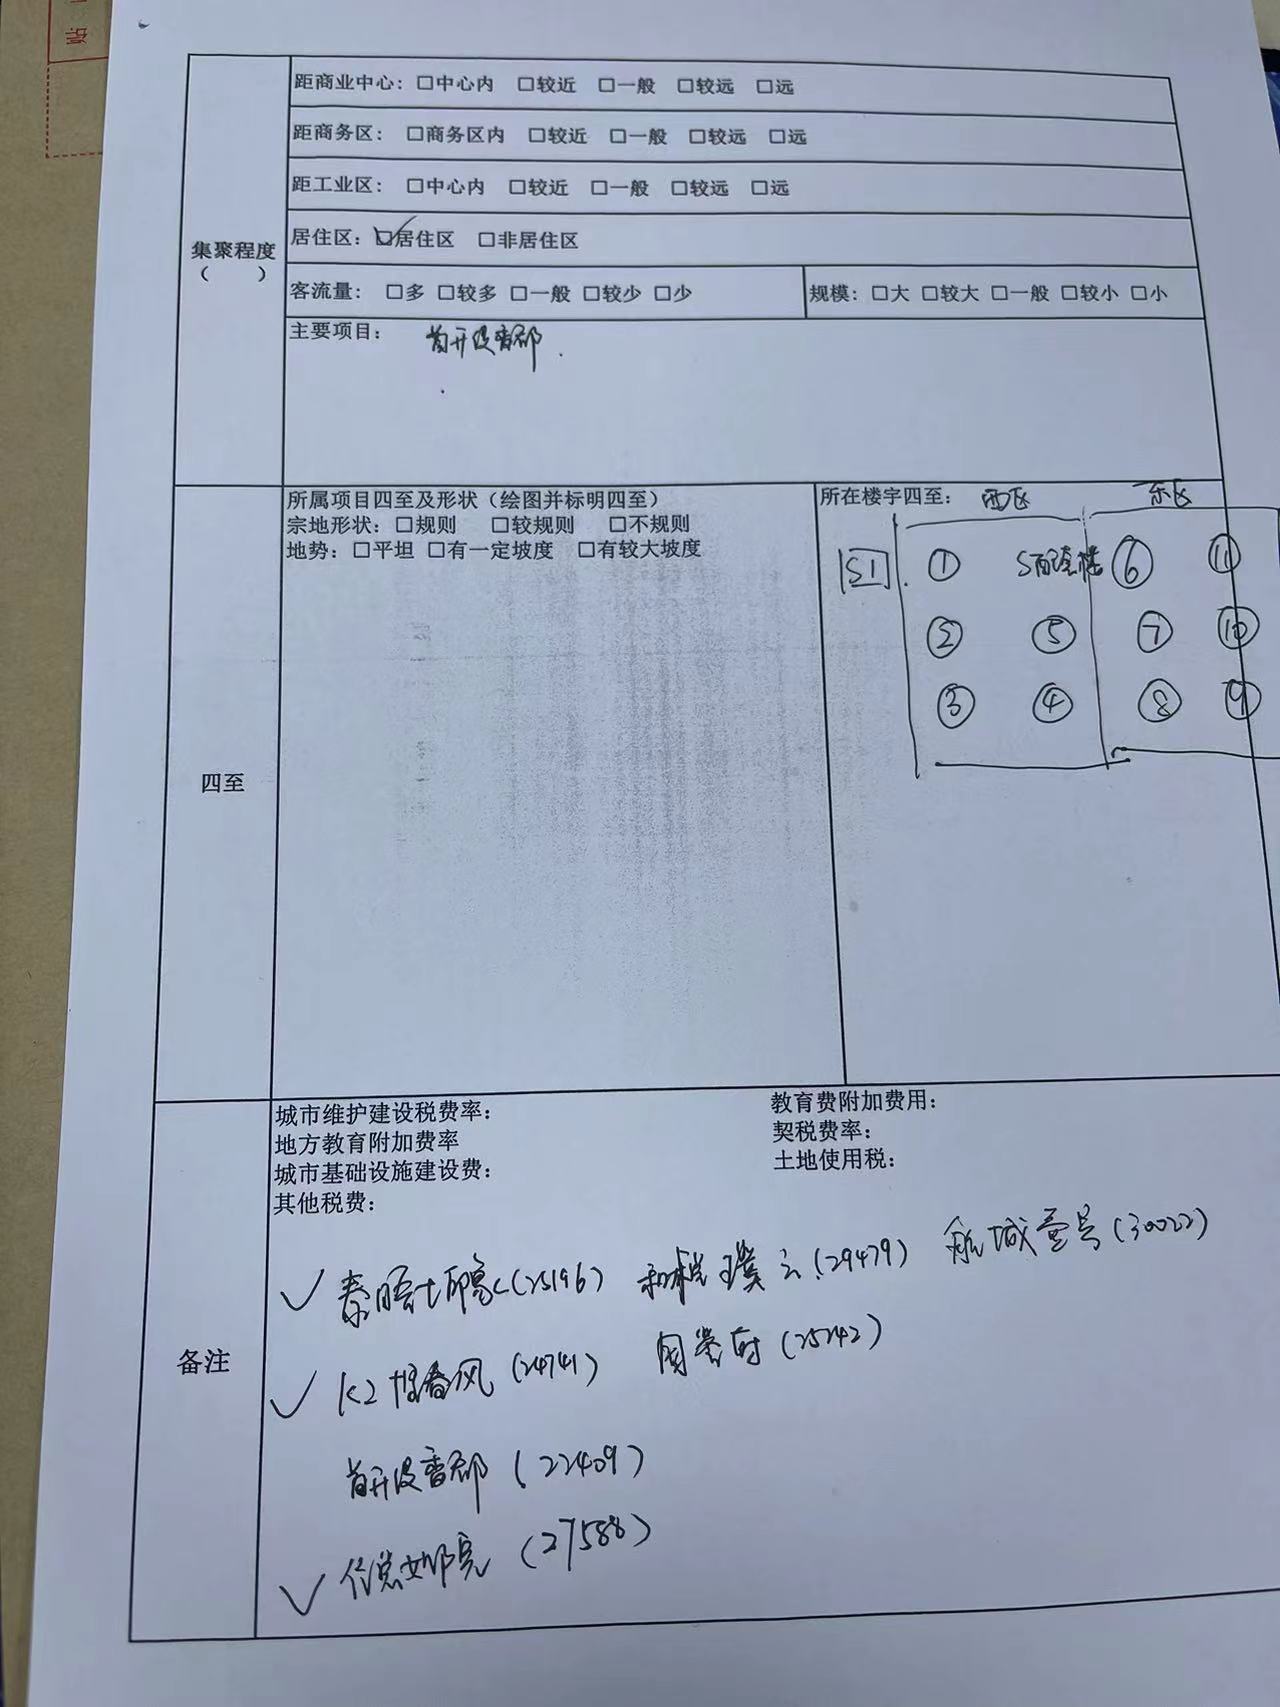 距商业中心：□中心内 □较近 □一般 □较远 □远
距商务区： □商务区内 □较近 □一般 □较远 □远
距工业区： □中心内 □较近 □一般 □较远 □远
居住区：☑居住区 □非居住区
集聚程度
（ ）
客流量： □多 □较多 □一般 □较少 □少
规模：□大 □较大 □一般 □较小 □小
主要项目： 首开缇香郡
四至
所属项目四至及形状（绘图并标明四至）
宗地形状：□规则 □较规则 □不规则
地势：□平坦 □有一定坡度 □有较大坡度
所在楼宇四至： 西区 东区
S1 ① S配套楼 ⑥ ⑪
② ⑤ ⑦ ⑩
③ ④ ⑧ ⑨
备注
城市维护建设税费率： 教育费附加费用：
地方教育附加费率 契税费率：
城市基础设施建设费： 土地使用税：
其他税费：
✓ (25196) 和悦璞云(29479) 航城壹号(30022)
✓ K2 春风(24741) 国誉府(25242)
首开缇香郡(22409)
✓ (27588)